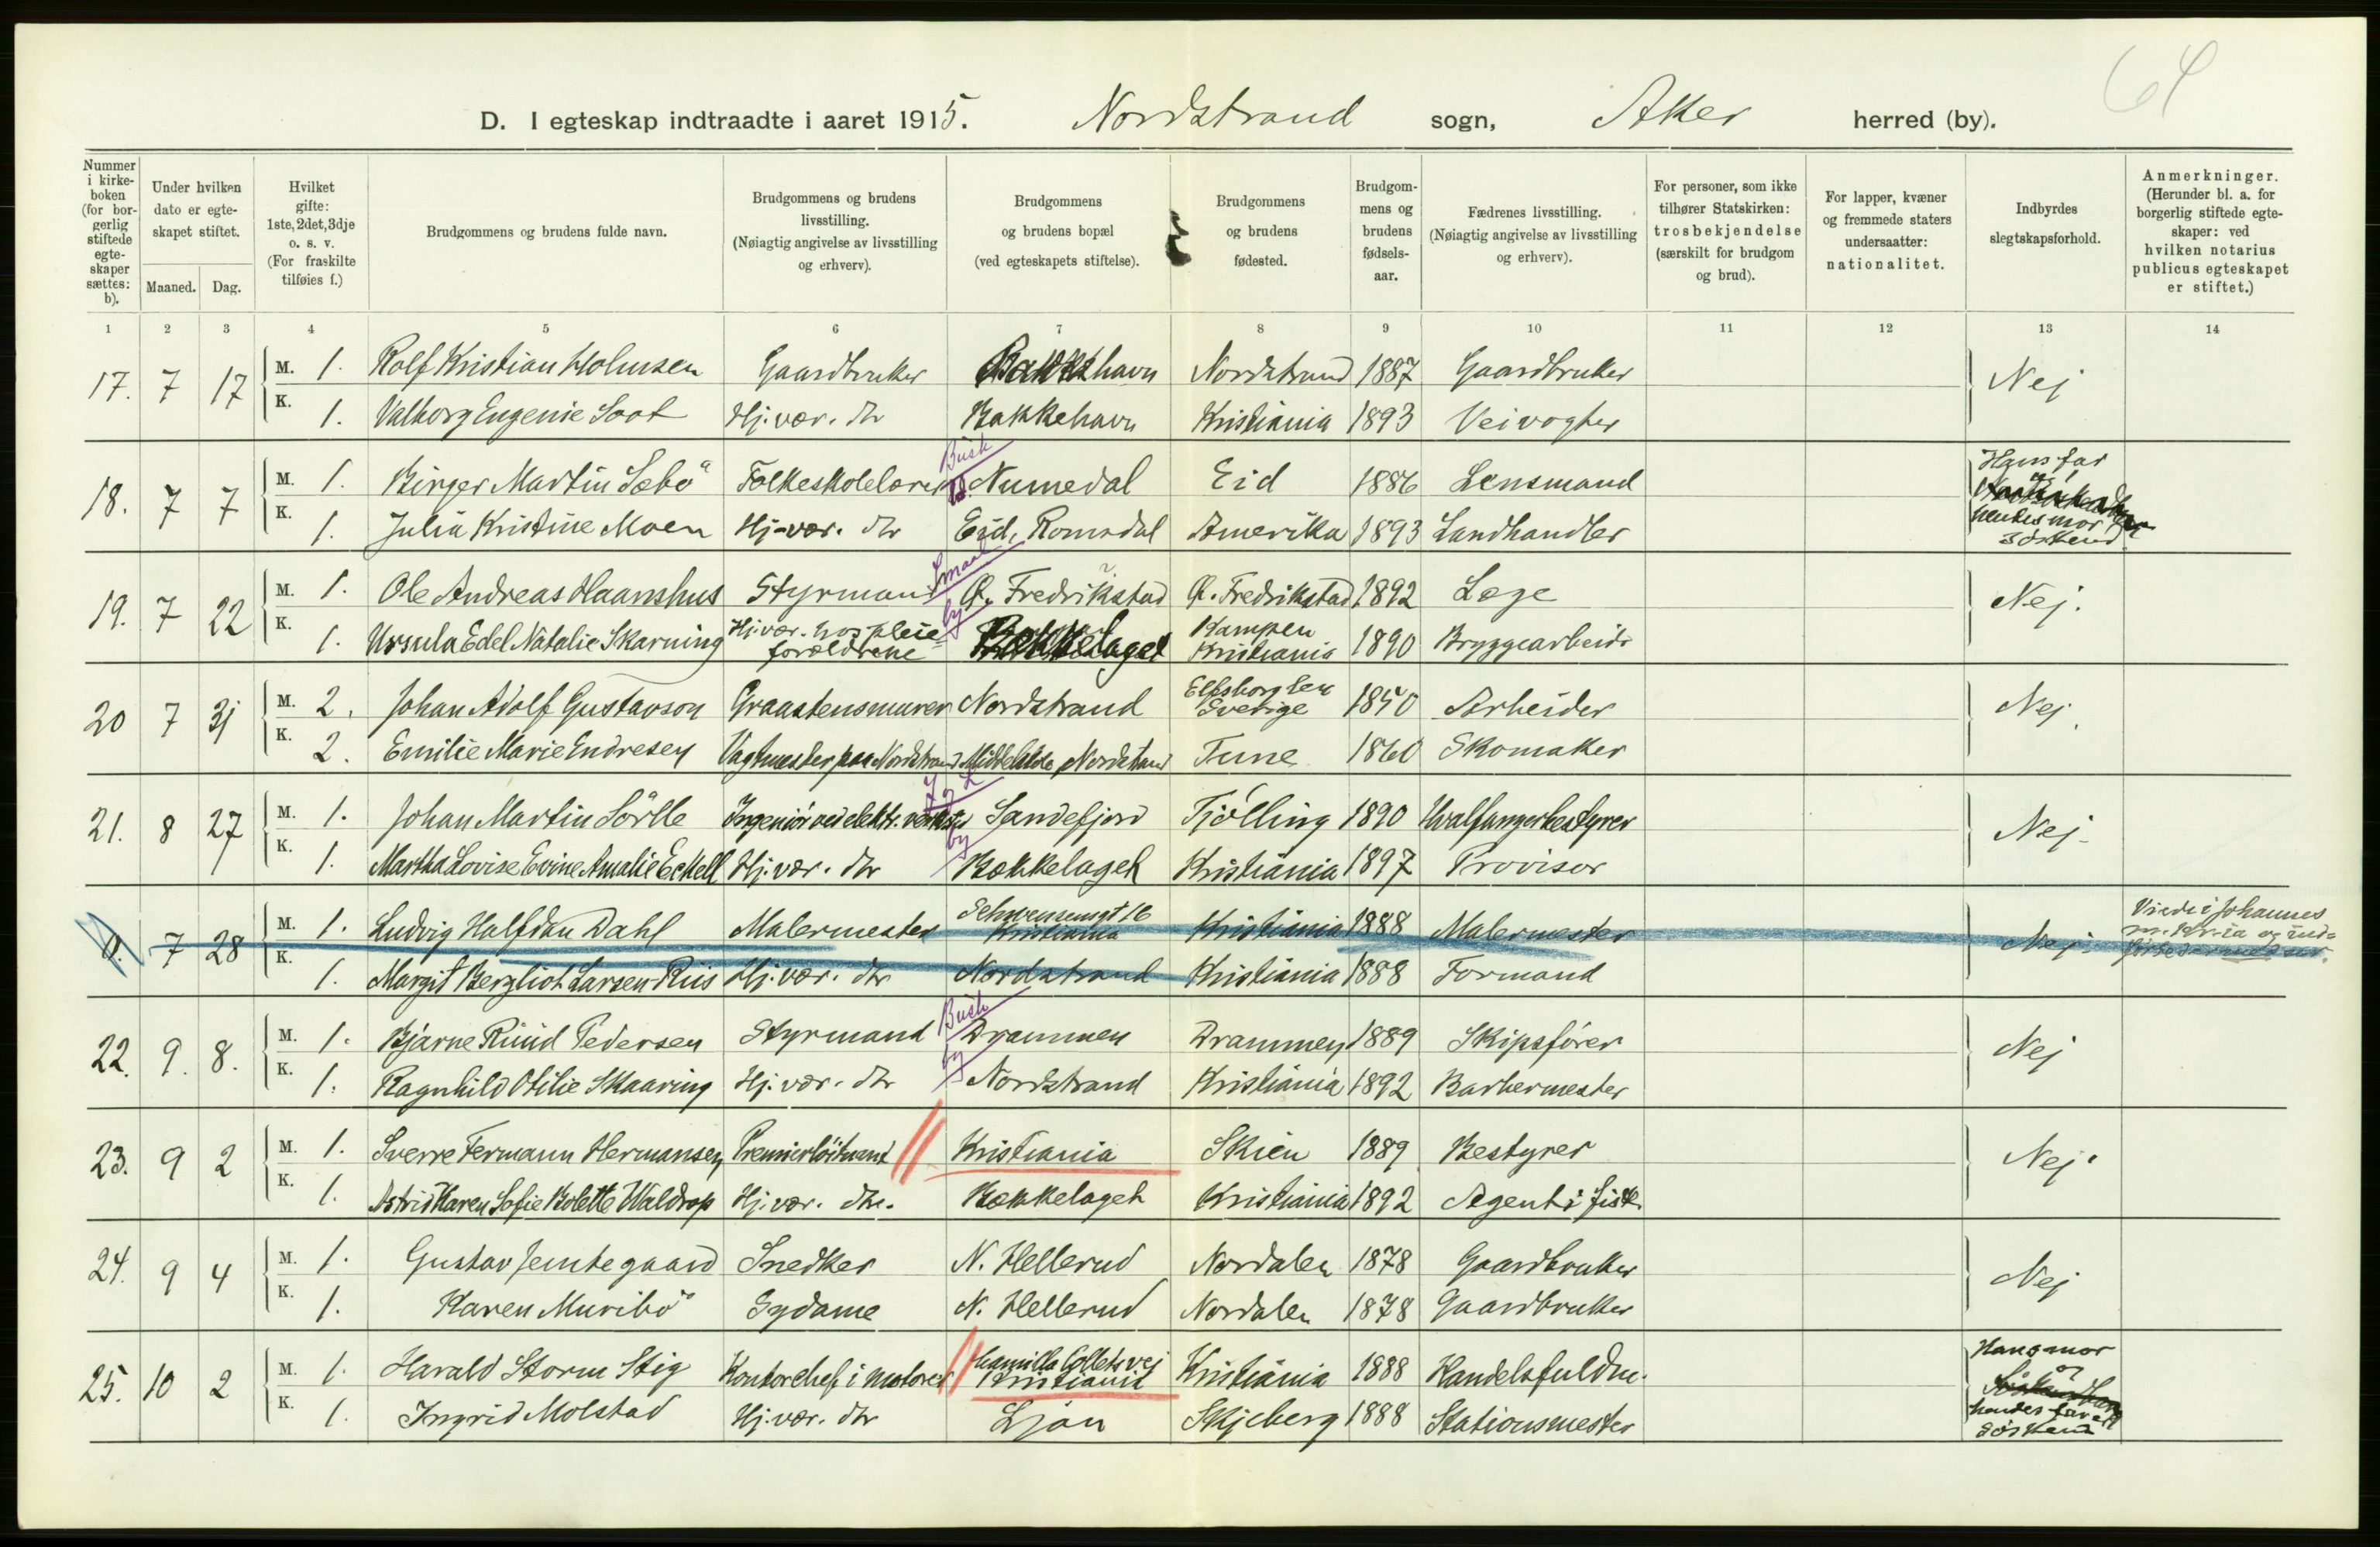 64
D. I egteskap indtraadte i aaret 1915. Nordstrand sogn, Aker herred (by).
Nummer i kirke-boken (for bor-gerlig stiftede egte-skaper sættes: b).
Under hvilken dato er egte-skapet stiftet.
Maaned. Dag.
Hvilket gifte: 1ste, 2det, 3dje o. s. v. (For fraskilte tilføies f.)
Brudgommens og brudens fulde navn.
Brudgommens og brudens livsstilling. (Nøiagtig angivelse av livsstilling og erhverv).
Brudgommens og brudens bopæl (ved egteskapets stiftelse).
Brudgommens og brudens fødested.
Brudgom-mens og brudens fødsels-aar.
Fædrenes livsstilling. (Nøiagtig angivelse av livsstilling og erhverv).
For personer, som ikke tilhører Statskirken: trosbekjendelse (særskilt for brudgom og brud).
For lapper, kvæner og fremmede staters undersaatter: nationalitet.
Indbyrdes slegtskapsforhold.
Anmerkninger. (Herunder bl. a. for borgerlig stiftede egte-skaper: ved hvilken notarius publicus egteskapet er stiftet.)
1 2 3 4 5 6 7 8 9 10 11 12 13 14
17. 7 17 M. 1. Rolf Kristian Holmsen Gaardbruker Bakkehavn Nordstrand 1887 Gaardbruker Nej
K. 1. Valborg Eugenie Soot Hj. vær. dtr Bakkehavn Kristiania 1893 Veivogter
Busk
18. 7 7 M. 1. Birger Martin Sæbö Folkeskolelærer Numedal Eid 1886 Lensmand Hans far og
K. 1. Julia Kristine Moen Hj-vær. dtr Eid, Romsdal Amerika 1893 Landhandler hendes mor söskend
Smaal
19. 7 22 M. 1. Ole Andreas Haanshus Styrmand Ø. Fredrikstad Ø. Fredrikstad 1892 Læge Nej.
by
K. 1. Ursula Edel Natalie Skarning Hj. vær. hos pleie=forældrene Bækkelaget Kampen Kristiania 1890 Bryggearbeider
20 7 31 M. 2. Johan Adolf Gustavson Graastensmurer Nordstrand Elfsborg len Sverige 1850 Arbeider Nej.
K. 2. Emilie Marie Endresen Vagtmester paa Nordstrand Middelskole, Nordstrand Tune 1860 Skomaker
J & L
21. 8 27 M. 1. Johan Martin Sörlle Ingeniör ved elektr. verksted Sandefjord Tjölling 1890 Hvalfangerbestyrer Nej-
by
K. 1. Martha Lovise Evine Amalie Eckell Hj. vær. dtr Bækkelaget Kristiania 1897 Provisor
7 28 M. 1. Ludvig Halfdan Dahl Malermester Schwensensgt 16 Kristiania Kristiania 1888 Malermester Nej- Viede i Johannes
K. 1. Margit Bergliot Larsen Riis Hj. vær. dtr Nordstrand Kristiania 1888 Formand
Busk
22. 9. 8. M. 1. Bjarne Ruud Pedersen Styrmand Drammen Drammen 1889 Skipsfører Nej
by
K. 1. Ragnhild Otilie Skaaring Hj. vær. dtr Nordstrand Kristiania 1892 Barbermester
23. 9 2 M. 1. Sverre Fermann Hermansen Premierlöitnant Kristiania Skien 1889 Bestyrer Nej.
K. 1. Astrid Karen Sofie Bolette Waldrop Hj. vær. dtr. Bækkelaget Kristiania 1892 Agent i fisk
24. 9 4 M. 1. Gustav Jemtegaard Snedker N. Hellerud Nordalen 1878 Gaardbruker Nej
K. 1. Karen Muribö Sydame N. Hellerud Nordalen 1878 Gaardbruker
25. 10 2 M. 1. Harald Storm Stig Kontorchef i motorer Camilla Colletsvej Kristiania Kristiania 1888 Handelsfuldm. Hans mor og
K. 1. Ingrid Molstad Hj. vær. dtr Ljan Skjeberg 1888 Stationsmester hendes far söskend